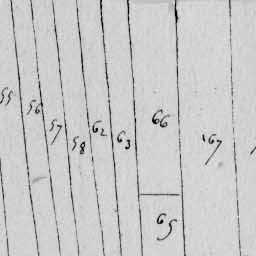 55
56
57
58
62
63
66
67
65